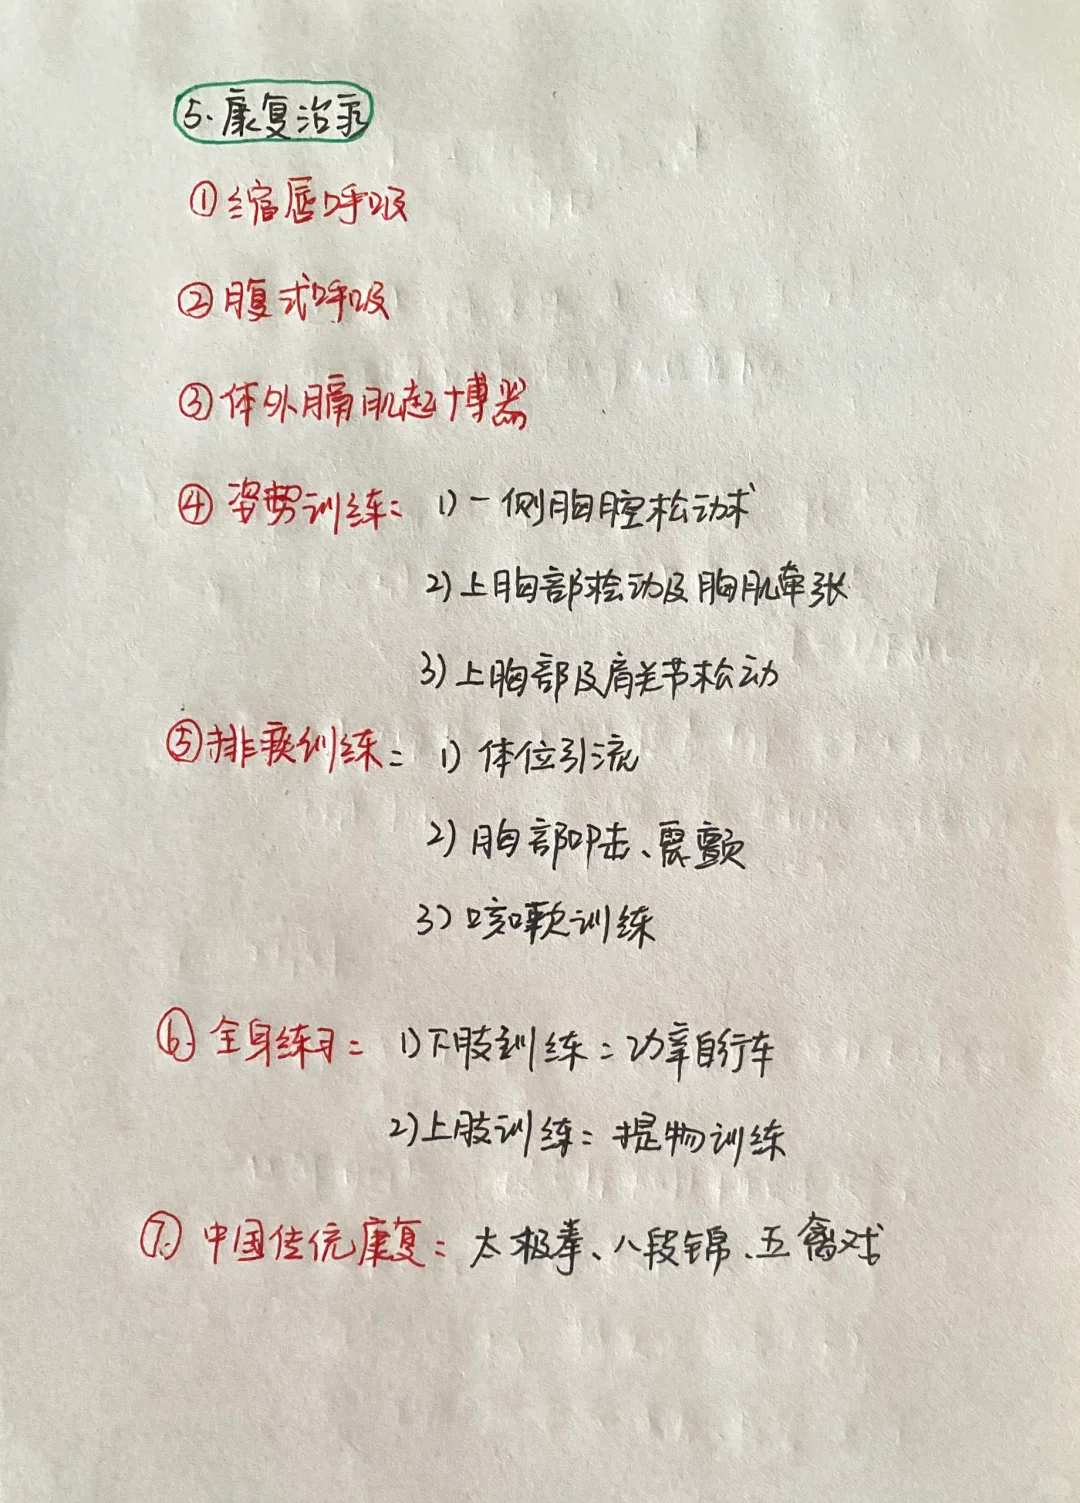 5.康复治疗
①缩唇呼吸
②腹式呼吸
③体外膈肌起博器
④姿势训练: 1)一侧胸腔松动术
2)上胸部松动及胸肌牵张
3)上胸部及肩关节松动
⑤排痰训练: 1)体位引流
2)胸部叩击、震颤
3)咳嗽训练
⑥全身练习: 1)下肢训练:功率自行车
2)上肢训练:提物训练
⑦中国传统康复:太极拳、八段锦、五禽戏